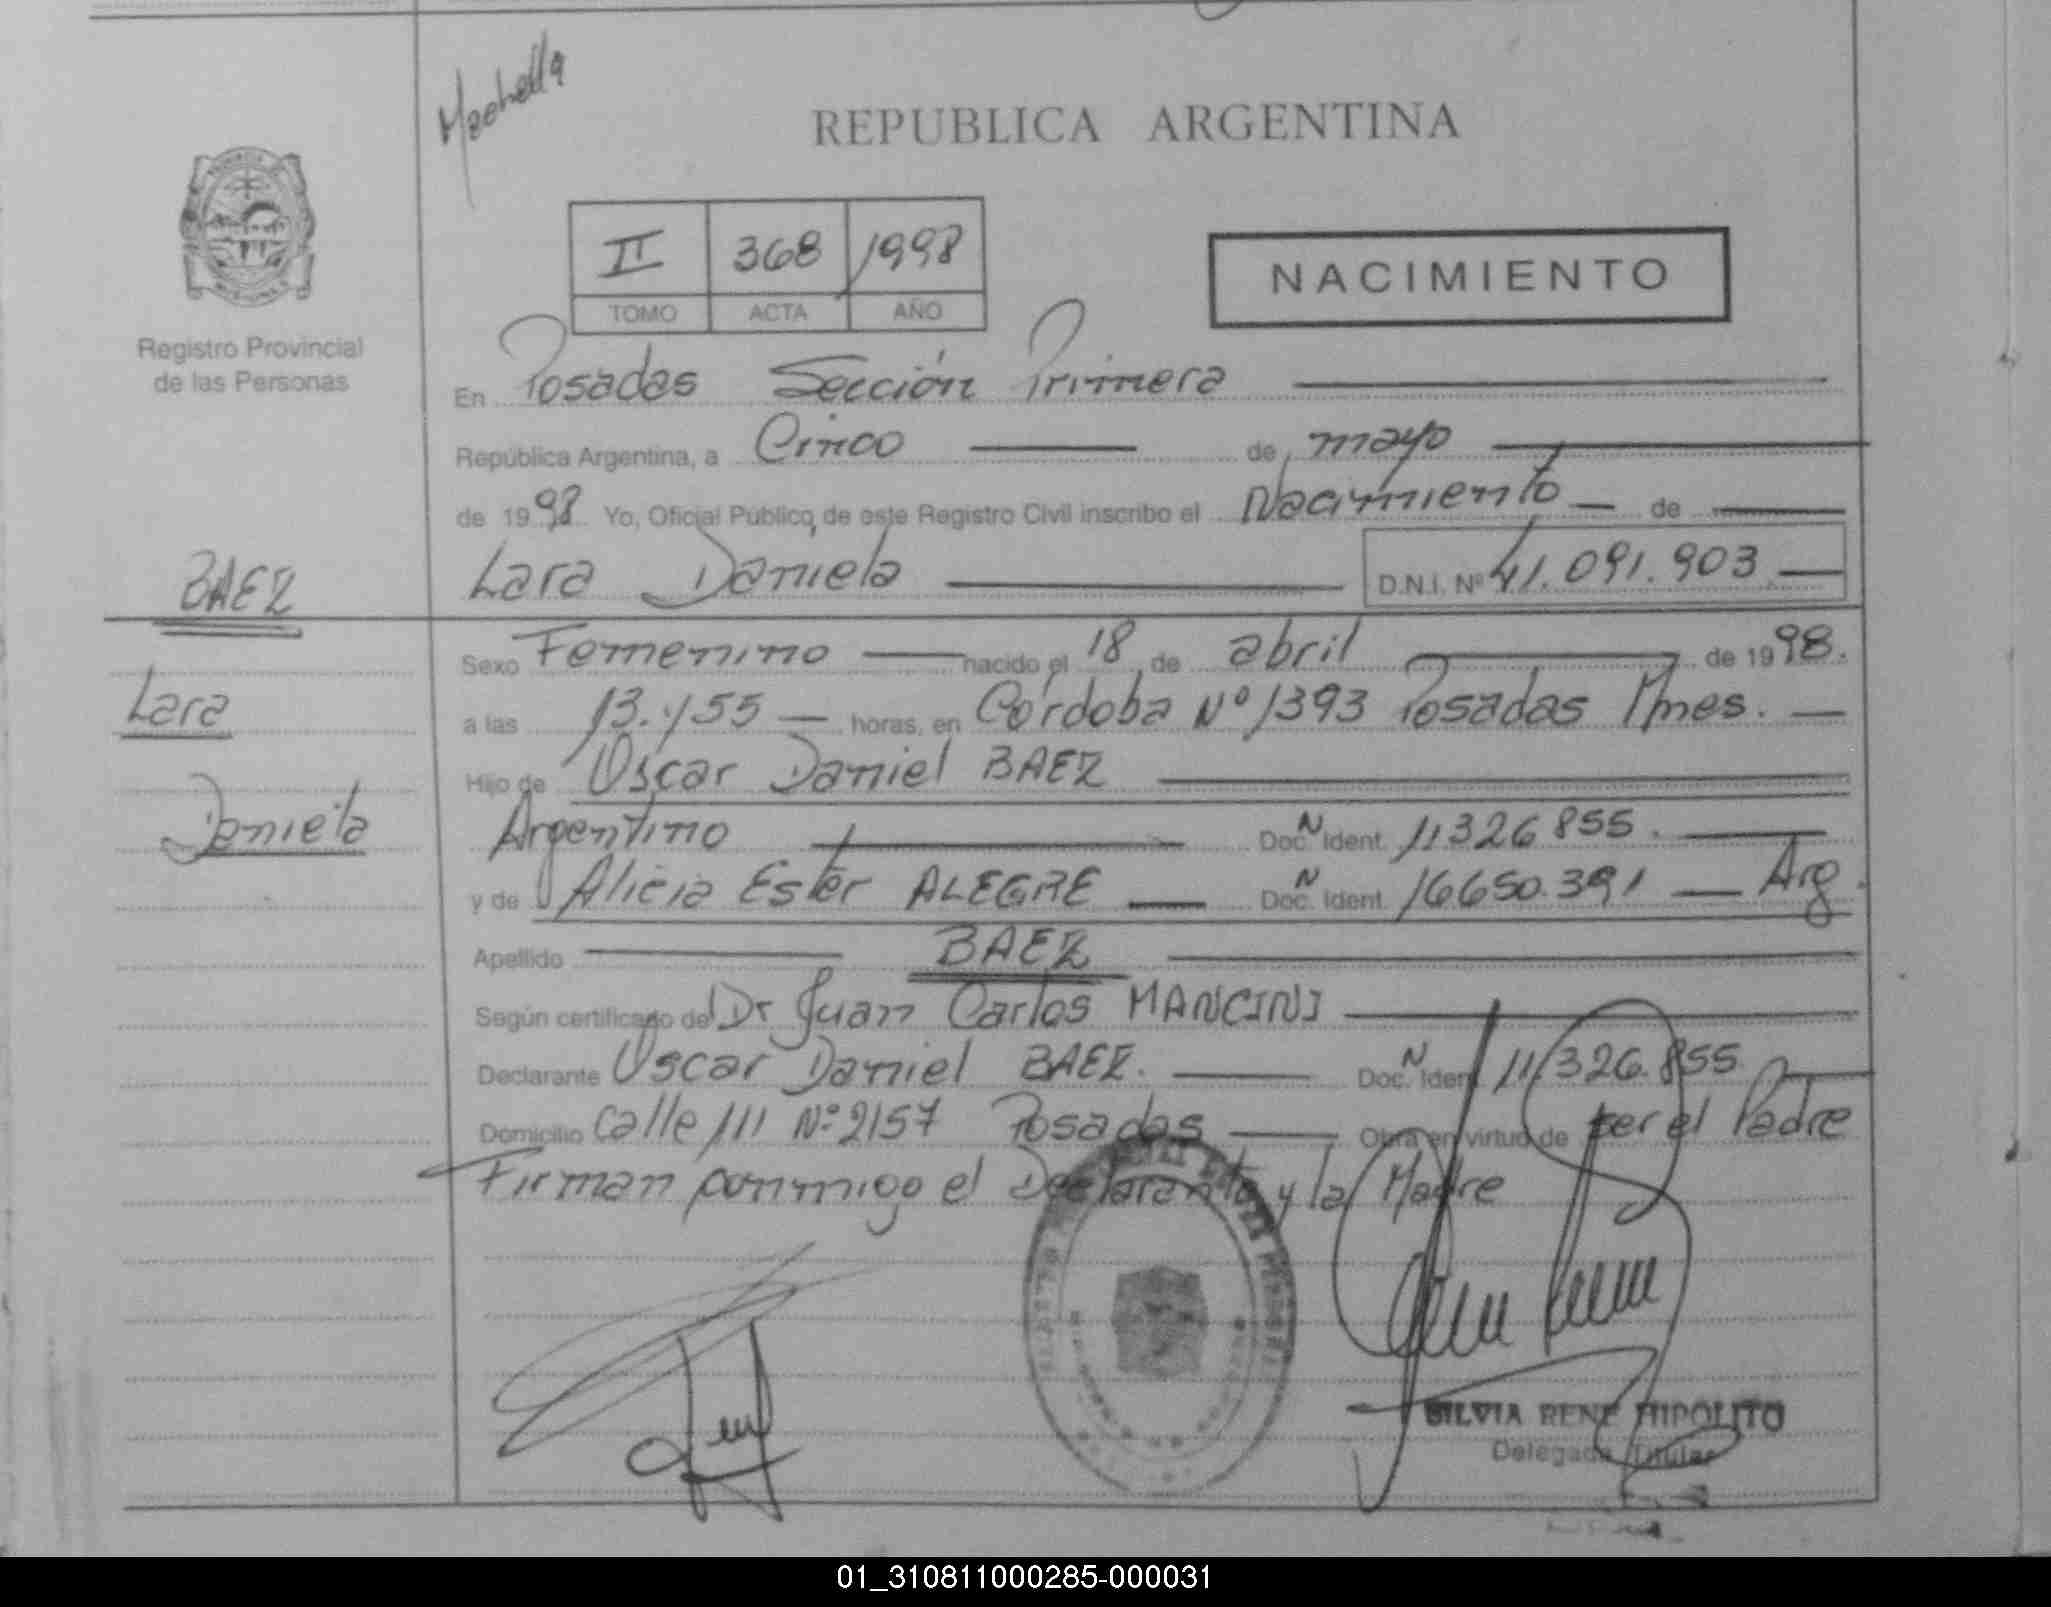 REPUBLICA ARGENTINA
II 368 1998
TOMO ACTA AÑO
NACIMIENTO
Registro Provincial
de las Personas
En Posadas Sección Primera
República Argentina, a Cinco de mayo
de 1998 Yo, Oficial Público de este Registro Civil inscribo el Nacimiento de
Lara Daniela D.N.I. Nº 41.091.903
BAEZ
Lara
Daniela
Sexo Femenino nacido el 18 de abril de 1998.
a las 13.y55 horas, en Córdoba Nº 1393 Posadas Mnes.
Hijo de Oscar Daniel BAEZ
Argentino Doc. N Ident. 11326855.
y de Alicia Ester ALEGRE Doc. N Ident. 16650.391 Arg.
Apellido BAEZ
Según certificado del Dr Juan Carlos MANCINI
Declarante Oscar Daniel BAEZ. Doc. N Ident. 11326.855
Domicilio Calle 111 Nº 2157 Posadas Obra en virtud de ser el Padre
Firman conmigo el Declarante y la Madre
SILVIA RENE HIPOLITO
Delegada Titular
01_310811000285-000031